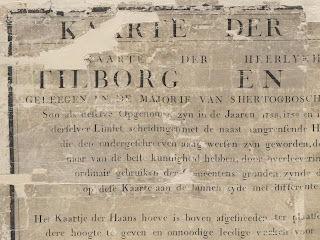 KAARTE DER
KAARTE DER HEERLYKH
TILBORG EN
GELEEGEN IN DE MAJORIE VAN SHERTOGBOSCH
Soo als deselve Opgenomen zyn in de Jaaren 1758, 1759 en 1
derselver Limiet scheidingen met de naast aangrensende H
die den ondergeschreven aang weesen zyn geworden, d
naar van de selt kundigheid hebben, door overleevrin
ordinair gebruiken der Gemeentens gronden zynde d
op dese Kaarte aan de binnen zyde met differente
Het Kaartje der Haans hoeve is boven afgescheeden ter plaatse
dere hoogte te geven en onnoodige leedige vakken voor